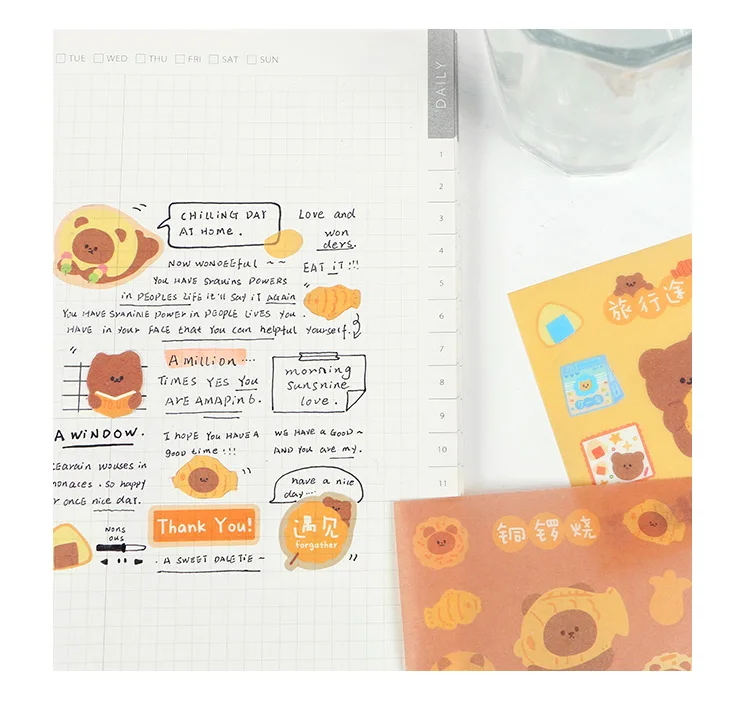 TUE WED THU FRI SAT SUN
DAILY
1
2
3
4
5
6
7
8
9
10
11
CHILLING DAY
AT HOME.
Love and
won
ders.
EAT IT !!!
NOW WONDEEFUL ~~
YOU HAVE SRANING POWERS
IN PEOPLES LIFE IT'LL SAY IT AGAIN
YOU HAVE SYANINE POWER IN PEOPLE LIVES YOU
HAVE IN YOUR FACE THAT YOU CAN HELPFUL YOURSELF.
A MILLION ....
TIMES YES YOU
ARE AMAPING.
morning
Sunsnine
love.
A WINDOW.
I HOPE YOU HAVE A
good time !!!
WE HAVE A GOOD~
AND YOU ARE MY.
EARAIN WOUSES IN
MONACES. SO HAPPY
ONCE NICE DAT.
have a nice
day....
NONS
OUS
Thank You!
遇见
Forgather
A SWEET DALETIE~
旅行途
铜锣烧